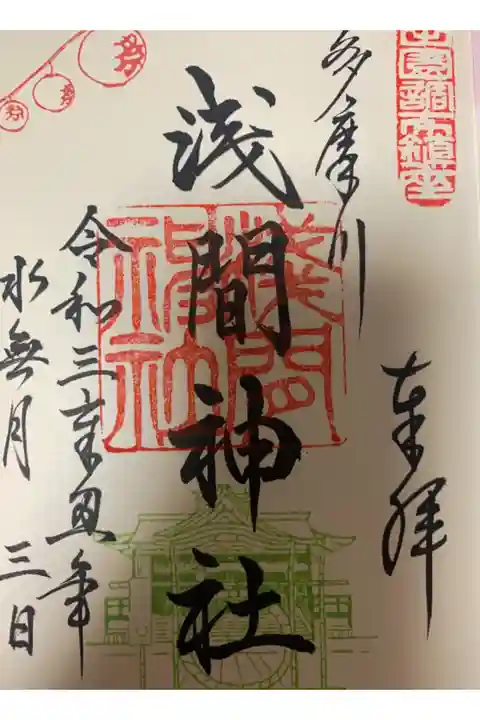 奉拝
多摩川
浅間神社
令和三辛丑年
水無月 三日
浅間
神社